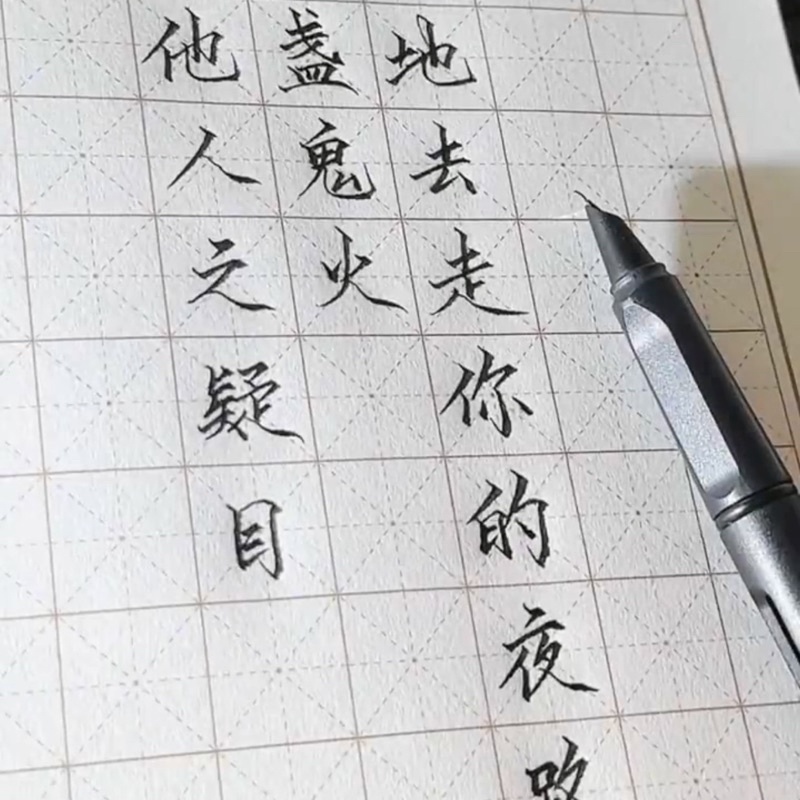 地去走你的夜路
盏鬼火
他人之疑目